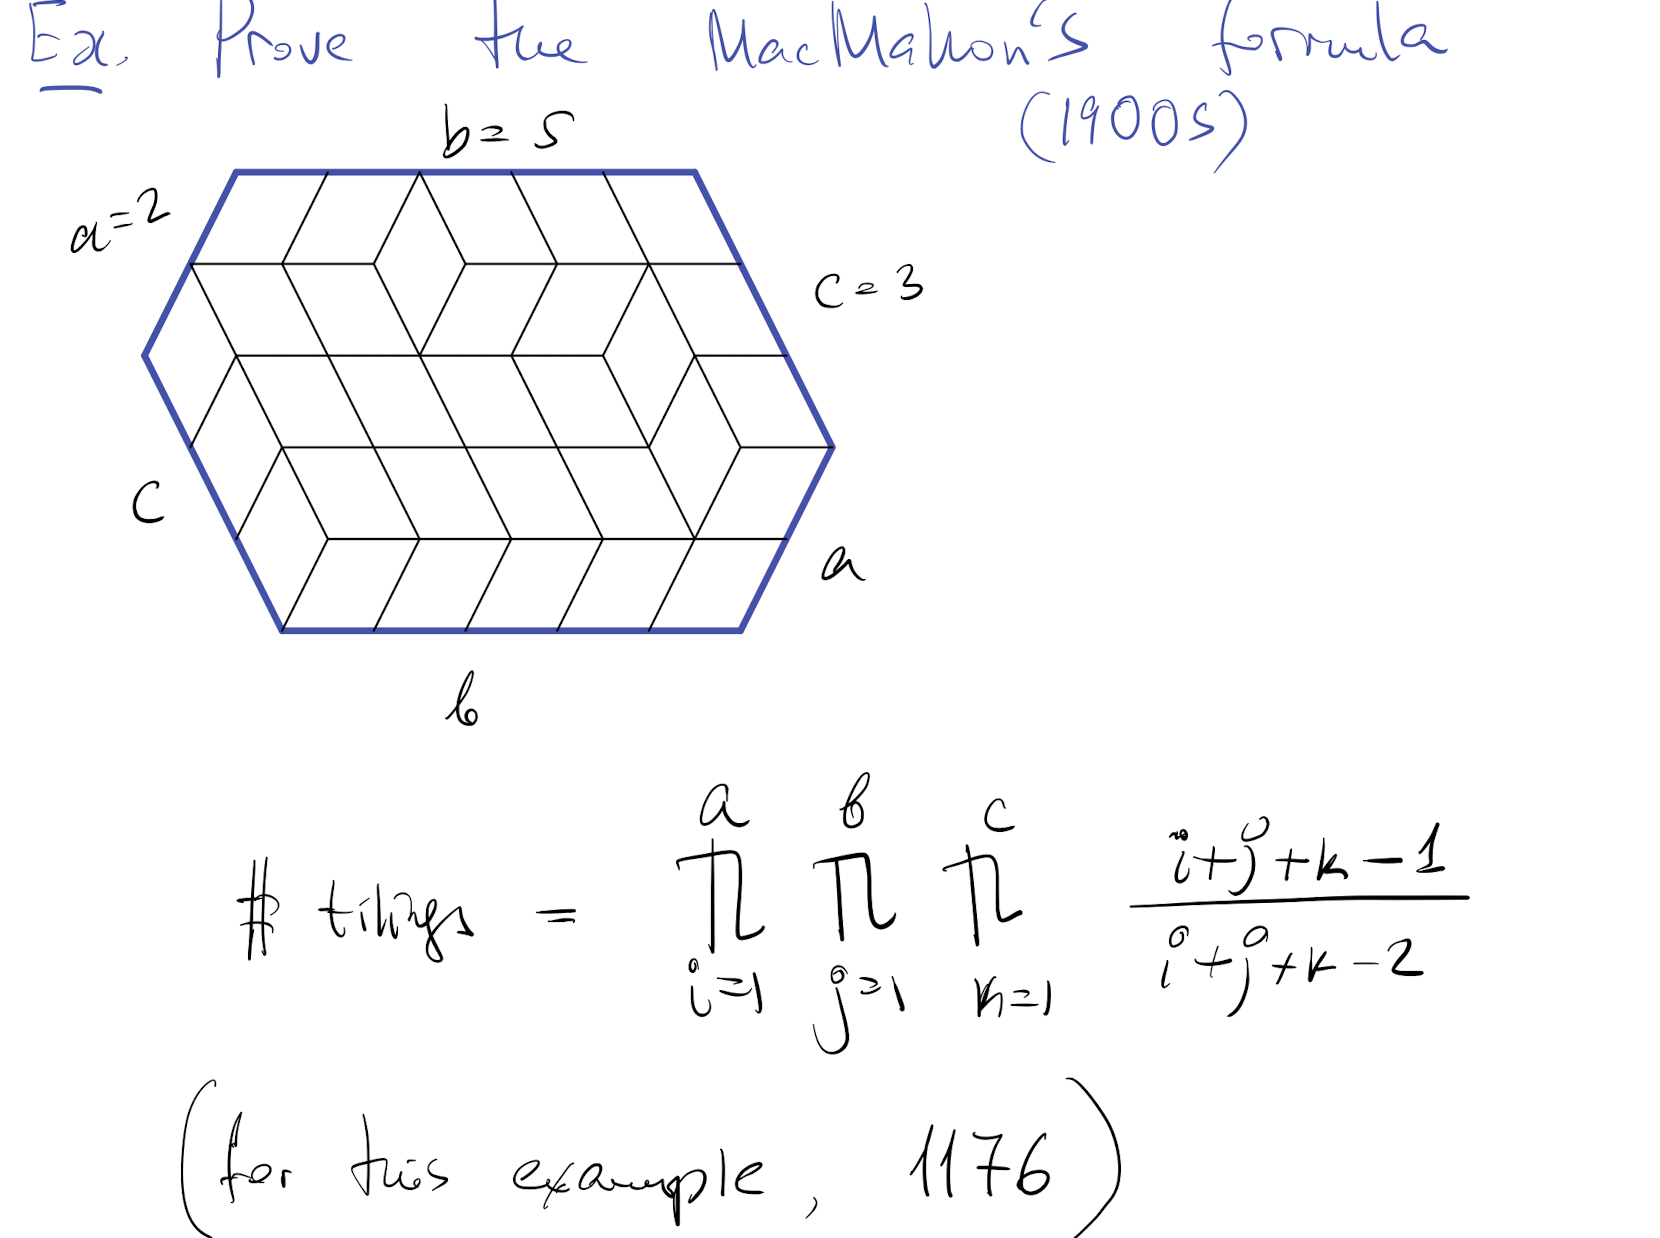 Ex. Prove the MacMahon's formula
(1900s)
b = 5
a=2
c = 3
c
a
b
# tilings = ∏_{i=1}^{a} ∏_{j=1}^{b} ∏_{k=1}^{c} \frac{i+j+k-1}{i+j+k-2}
(for this example, 1176)